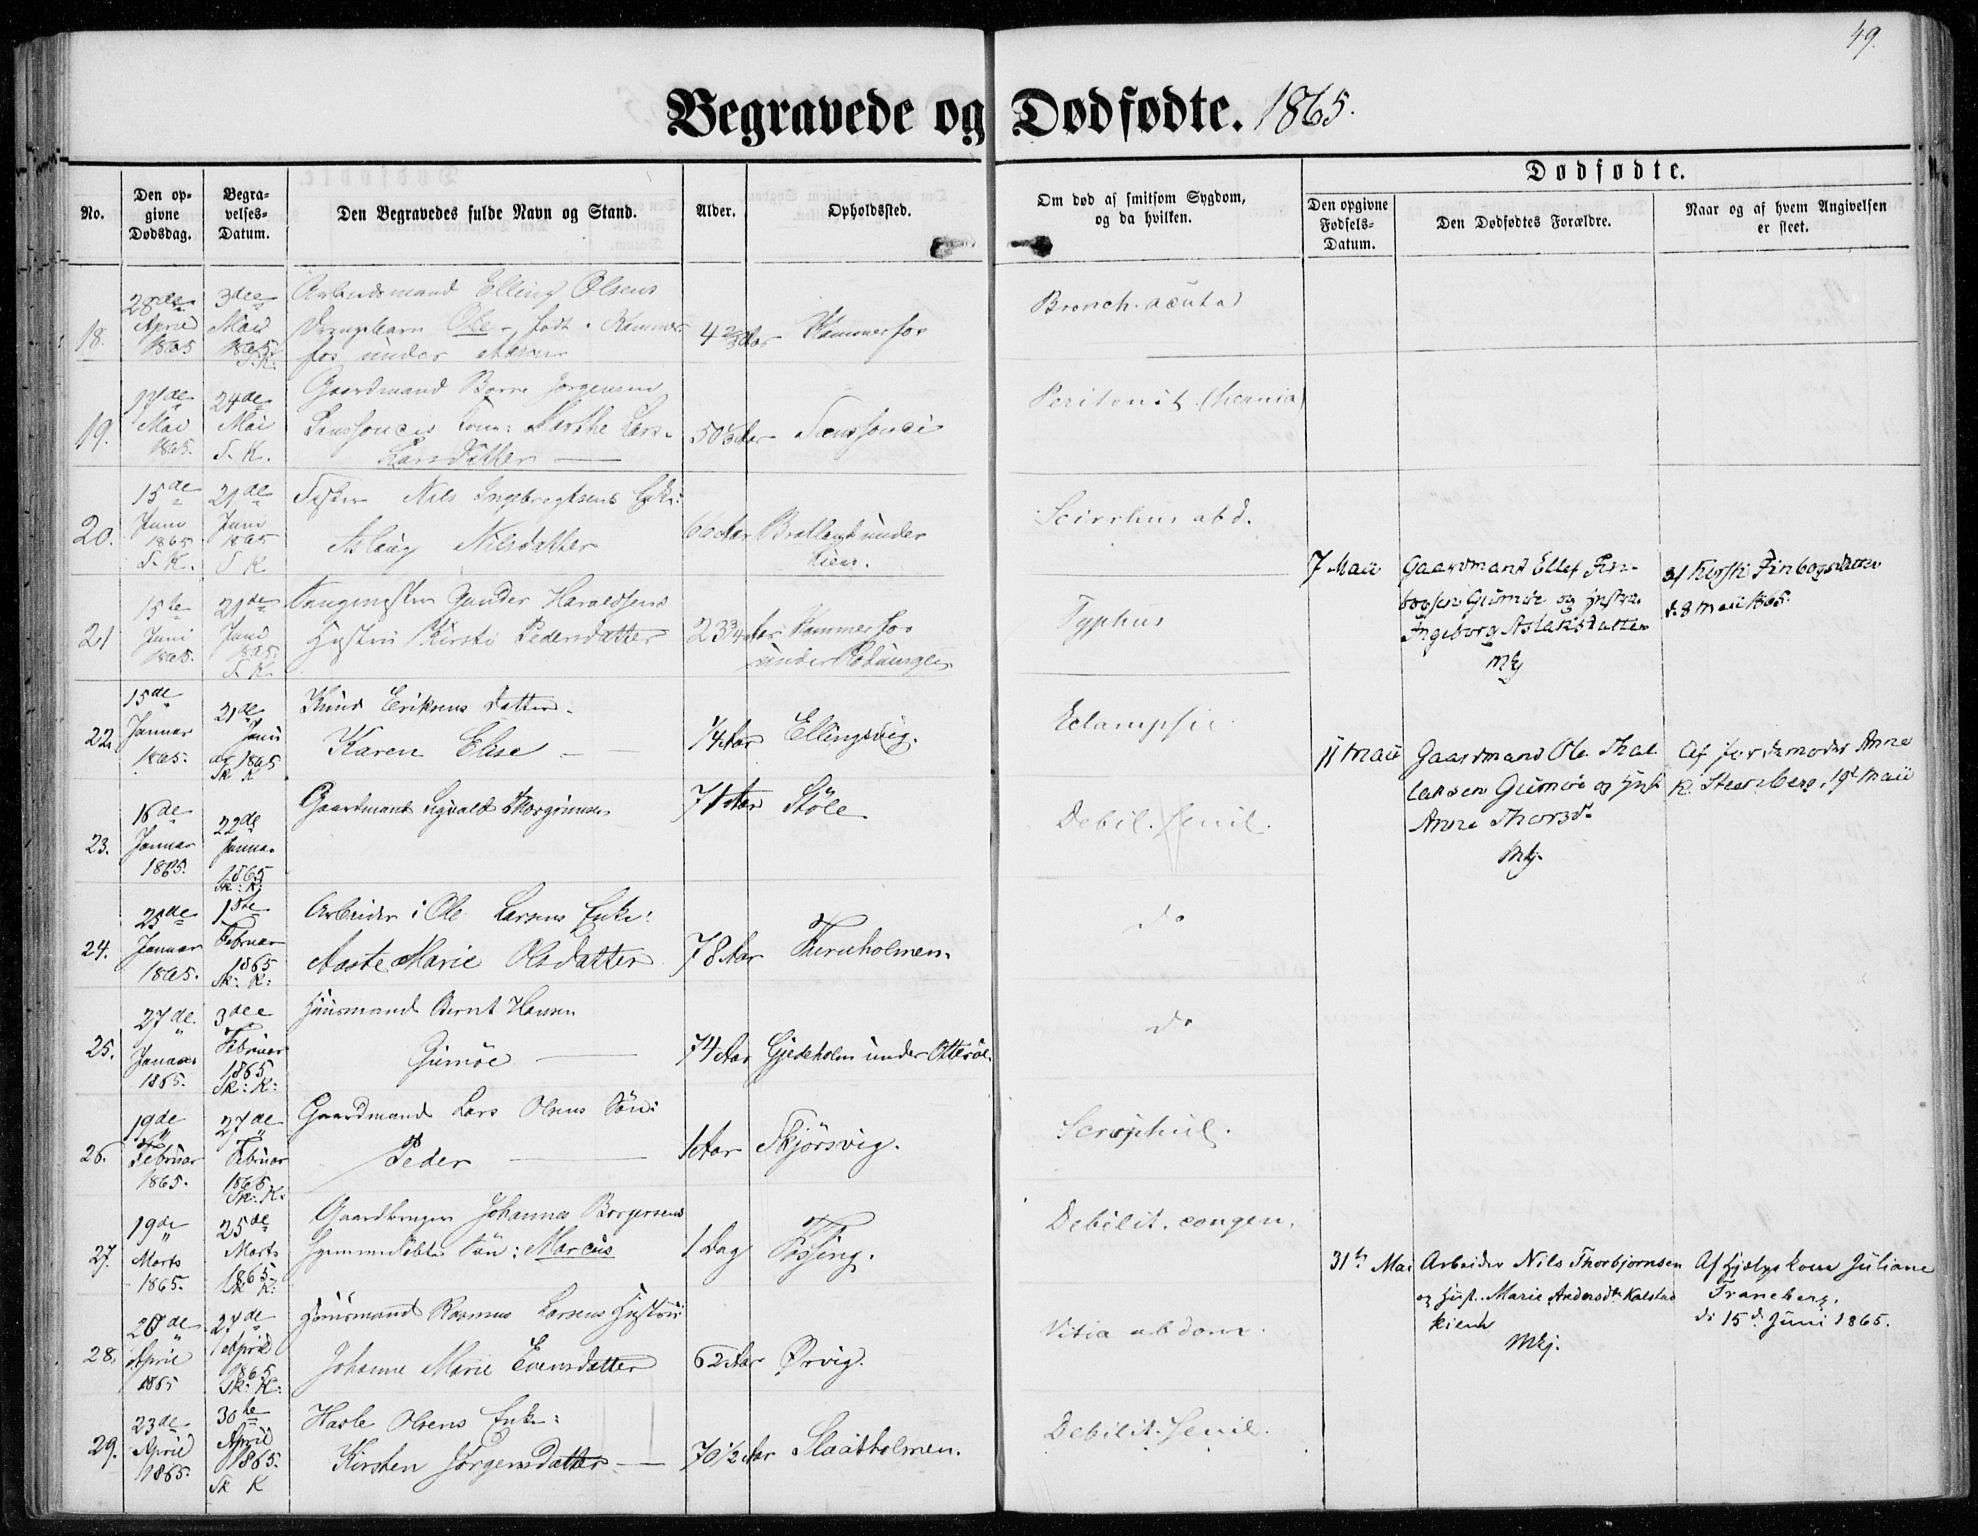 49.
Begravede og Dødfødte. 1865.
No.
Den opgivne Dødsdag.
Begravelses-Datum.
Den Begravedes fulde Navn og Stand.
Alder.
Opholdssted.
Om død af smitsom Sygdom, og da hvilken.
Dødfødte.
Den opgivne Fødsels-Datum.
Den Dødfødtes Forældre.
Naar og af hvem Angivelsen er skeet.
18.
28de April 1865
3die Mai 1865 S. K.
Arbeidsmand Elling Olsens
Drengebarn Ole, født i Kammer-
fos under
Kammerfos
Bronch. acuta
19.
17de Mai 1865.
24de Mai S. K.
Gaardmand Børre Jørgensen
Sanssoucis Kone: Marthe Lars-
Larsdatter
50 1/2 Aar
Sanssouci
Peritonit. (hernia)
20.
15de Juni 1865 S. K.
21de Juni 1865 S K
Nils Ingebrogtsens Enke:
Aslaug Nilsdatter
66 Aar
under
Kien.
Scirrhus abd.
21
15te Juni 1865.
21de Juni 1865. S. K
Gunder Haraldsens
Hustru Kirsti Pedersdatter
23 3/4 Aar
Kammerfos
under
Typhus
22.
15de Januar 1865.
21de 1865 Sk K
Knud Eriksens Datter
Karen Else
1/4 Aar
Ellingsvig.
Eclampsie
23.
16de Januar 1865.
22de Januar 1865 Sk: K:
Gaardmand Sigvald Thorgrimsen
71 Aar
Støle
Debil. senil.
24.
25de Januar 1865.
1ste Februar 1865 Sk: K:
Arbeider i Ole Larsens Enke:
Aaste Marie Olsdatter
78 Aar
Furuholmen.
do
25.
27de Januar 1865.
3die Februar 1865 Sk: K:
Huusmand Bernt Hansen
Gumøe
74 Aar
Gjedeholm under Otterøe.
do
26.
19de Februar 1865.
27de Februar 1865. Sk: K:
Gaardmand Lars Olsens Søn:
Peder
1 Aar
Skjørsvig.
Scrophul.
27.
19de Marts 1865.
25de Marts 1865. Sk K:
Gaardbruger Johannes Borgersens
hjemmedøbte Søn: Marcus
1 Dag
Fossing.
Debilit. congen.
28.
20de April 1865
27de April 1865 Sk: K:
Huusmand Rasmus Larsens Hustru
Johanne Marie Evensdatter
62 Aar
Ørvig.
Vitia abdom.
29.
23de April 1865.
30te April 1865. Sk K
Olsens Enke:
Kirsten Jørgensdatter
70 1/2 Aar
Slaatholmen.
Debilit. senil.
7 Maii
Gaardmand Ellef Fin-
bogsen Gumøe og Hustru
Ingeborg Aslaksdatter
Mkj
af Kirsti Finbogsdatter
d. 8 Maii 1865.
11 Maii
Gaardmand Ole Thal-
laksen Gumøe og Hust
Anne Thorsd.
Mkj.
Af Jordemoder Anne
K. Steenberg, 19d Maii
31te Mai
Arbeider Nils Thorbjørnsen
og Hust. Marie Andersdtr Kalstad
kiend
Mkj.
Af Hjelpekone Juliane
Traneberg.
d: 15d. Juni 1865.